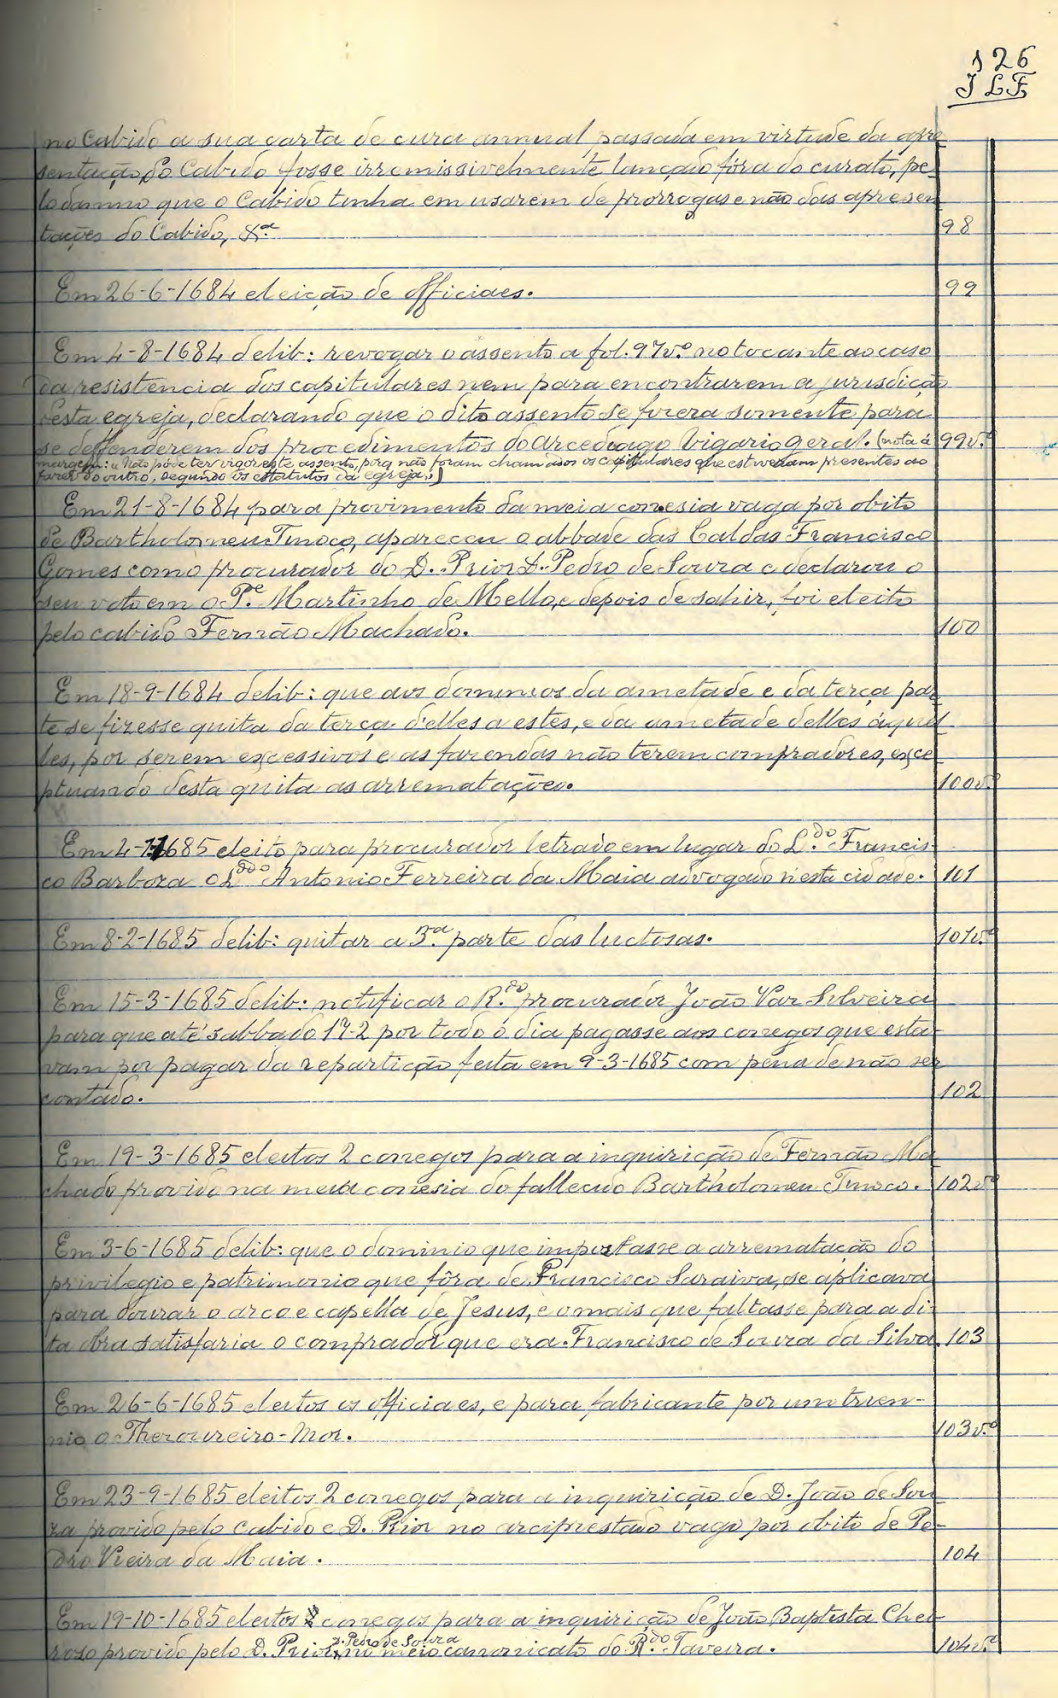 126
J L F
no Cabido a sua carta de cura annual, passada em virtude da apre-
sentação do Cabido, fosse irremissivelmente lançado fóra do curato, pe-
lo damno que o Cabido tinha em usarem de prorrogas e não das apresen-
tações do Cabido, &ª 98
Em 26-6-1684 eleição de officiaes. 99
Em 4-8-1684 delib: revogar o assento a fol. 97v.º no tocante ao caso
da resistencia dos capitulares nem para encontrarem a jurisdição
desta egreja, declarando que o dito assento se fizera somente para
se deffenderem dos procedimentos do arcediago Vigario geral. (nota á 99v.º
margem: «Não póde ter vigor este assento, porq não foram chamados os capitulares que estiveram presentes ao
fazer do outro, segundo os estatutos da egreja.»)
Em 21-8-1684 para provimento da meia conesia vaga por obito
de Bartholomeu Tinoco, apareceu o abbade das Caldas Francisco
Gomes como procurador do D. Prior D. Pedro de Souza e declarou o
seu voto em o P.e Martinho de Mello, e depois de sahir, foi eleito
pelo cabido Fernão Machado. 100
Em 18-9-1684 delib: que aos dominios da ametade e da terça par-
te se fizesse quita da terça delles a estes, e da ametade delles áquel-
les, por serem excessivos e as fazendas não terem compradores, exce-
ptuando desta quita as arrematações. 100v.º
Em 4-1-1685 eleito para procurador letrado em lugar do L.do Francis-
co Barboza o L.do Antonio Ferreira da Maia advogado n'esta cidade. 101
Em 8-2-1685 delib: quitar a 3.ª parte das luctosas. 101v.º
Em 15-3-1685 delib: notificar o R.do procurador João Vaz Silveira
para que até sabbado 17-2 por todo o dia pagasse aos conegos que esta-
vam por pagar da repartição feita em 9-3-1685 com pena de não ser
contado. 102
Em 19-3-1685 eleitos 2 conegos para a inquirição de Fernão Ma-
chado provido na meia conesia do fallecido Bartholomeu Tinoco. 102v.º
Em 3-6-1685 delib: que o dominio que importasse a arrematação do
privilegio e patrimonio que fôra de Francisco Saraiva, se aplicava
para dourar o arco e capella de Jesus, e o mais que faltasse para a di-
ta obra satisfaria o comprador que era Francisco de Souza da Silva. 103
Em 26-6-1685 eleitos os officiaes, e para fabricante por um trien-
nio o Thezoureiro-Mor. 103v.º
Em 23-9-1685 eleitos 2 conegos para a inquirição de D. João de Sou-
za provido pelo cabido e D. Prior no arciprestado vago por obito de Pe-
dro Vieira da Maia. 104
Em 19-10-1685 eleitos 2 conegos para a inquirição de João Baptista Chei-
roso provido pelo D. Prior D. Pedro de Souza, no meio canonicato do R.do Taveira. 104v.º